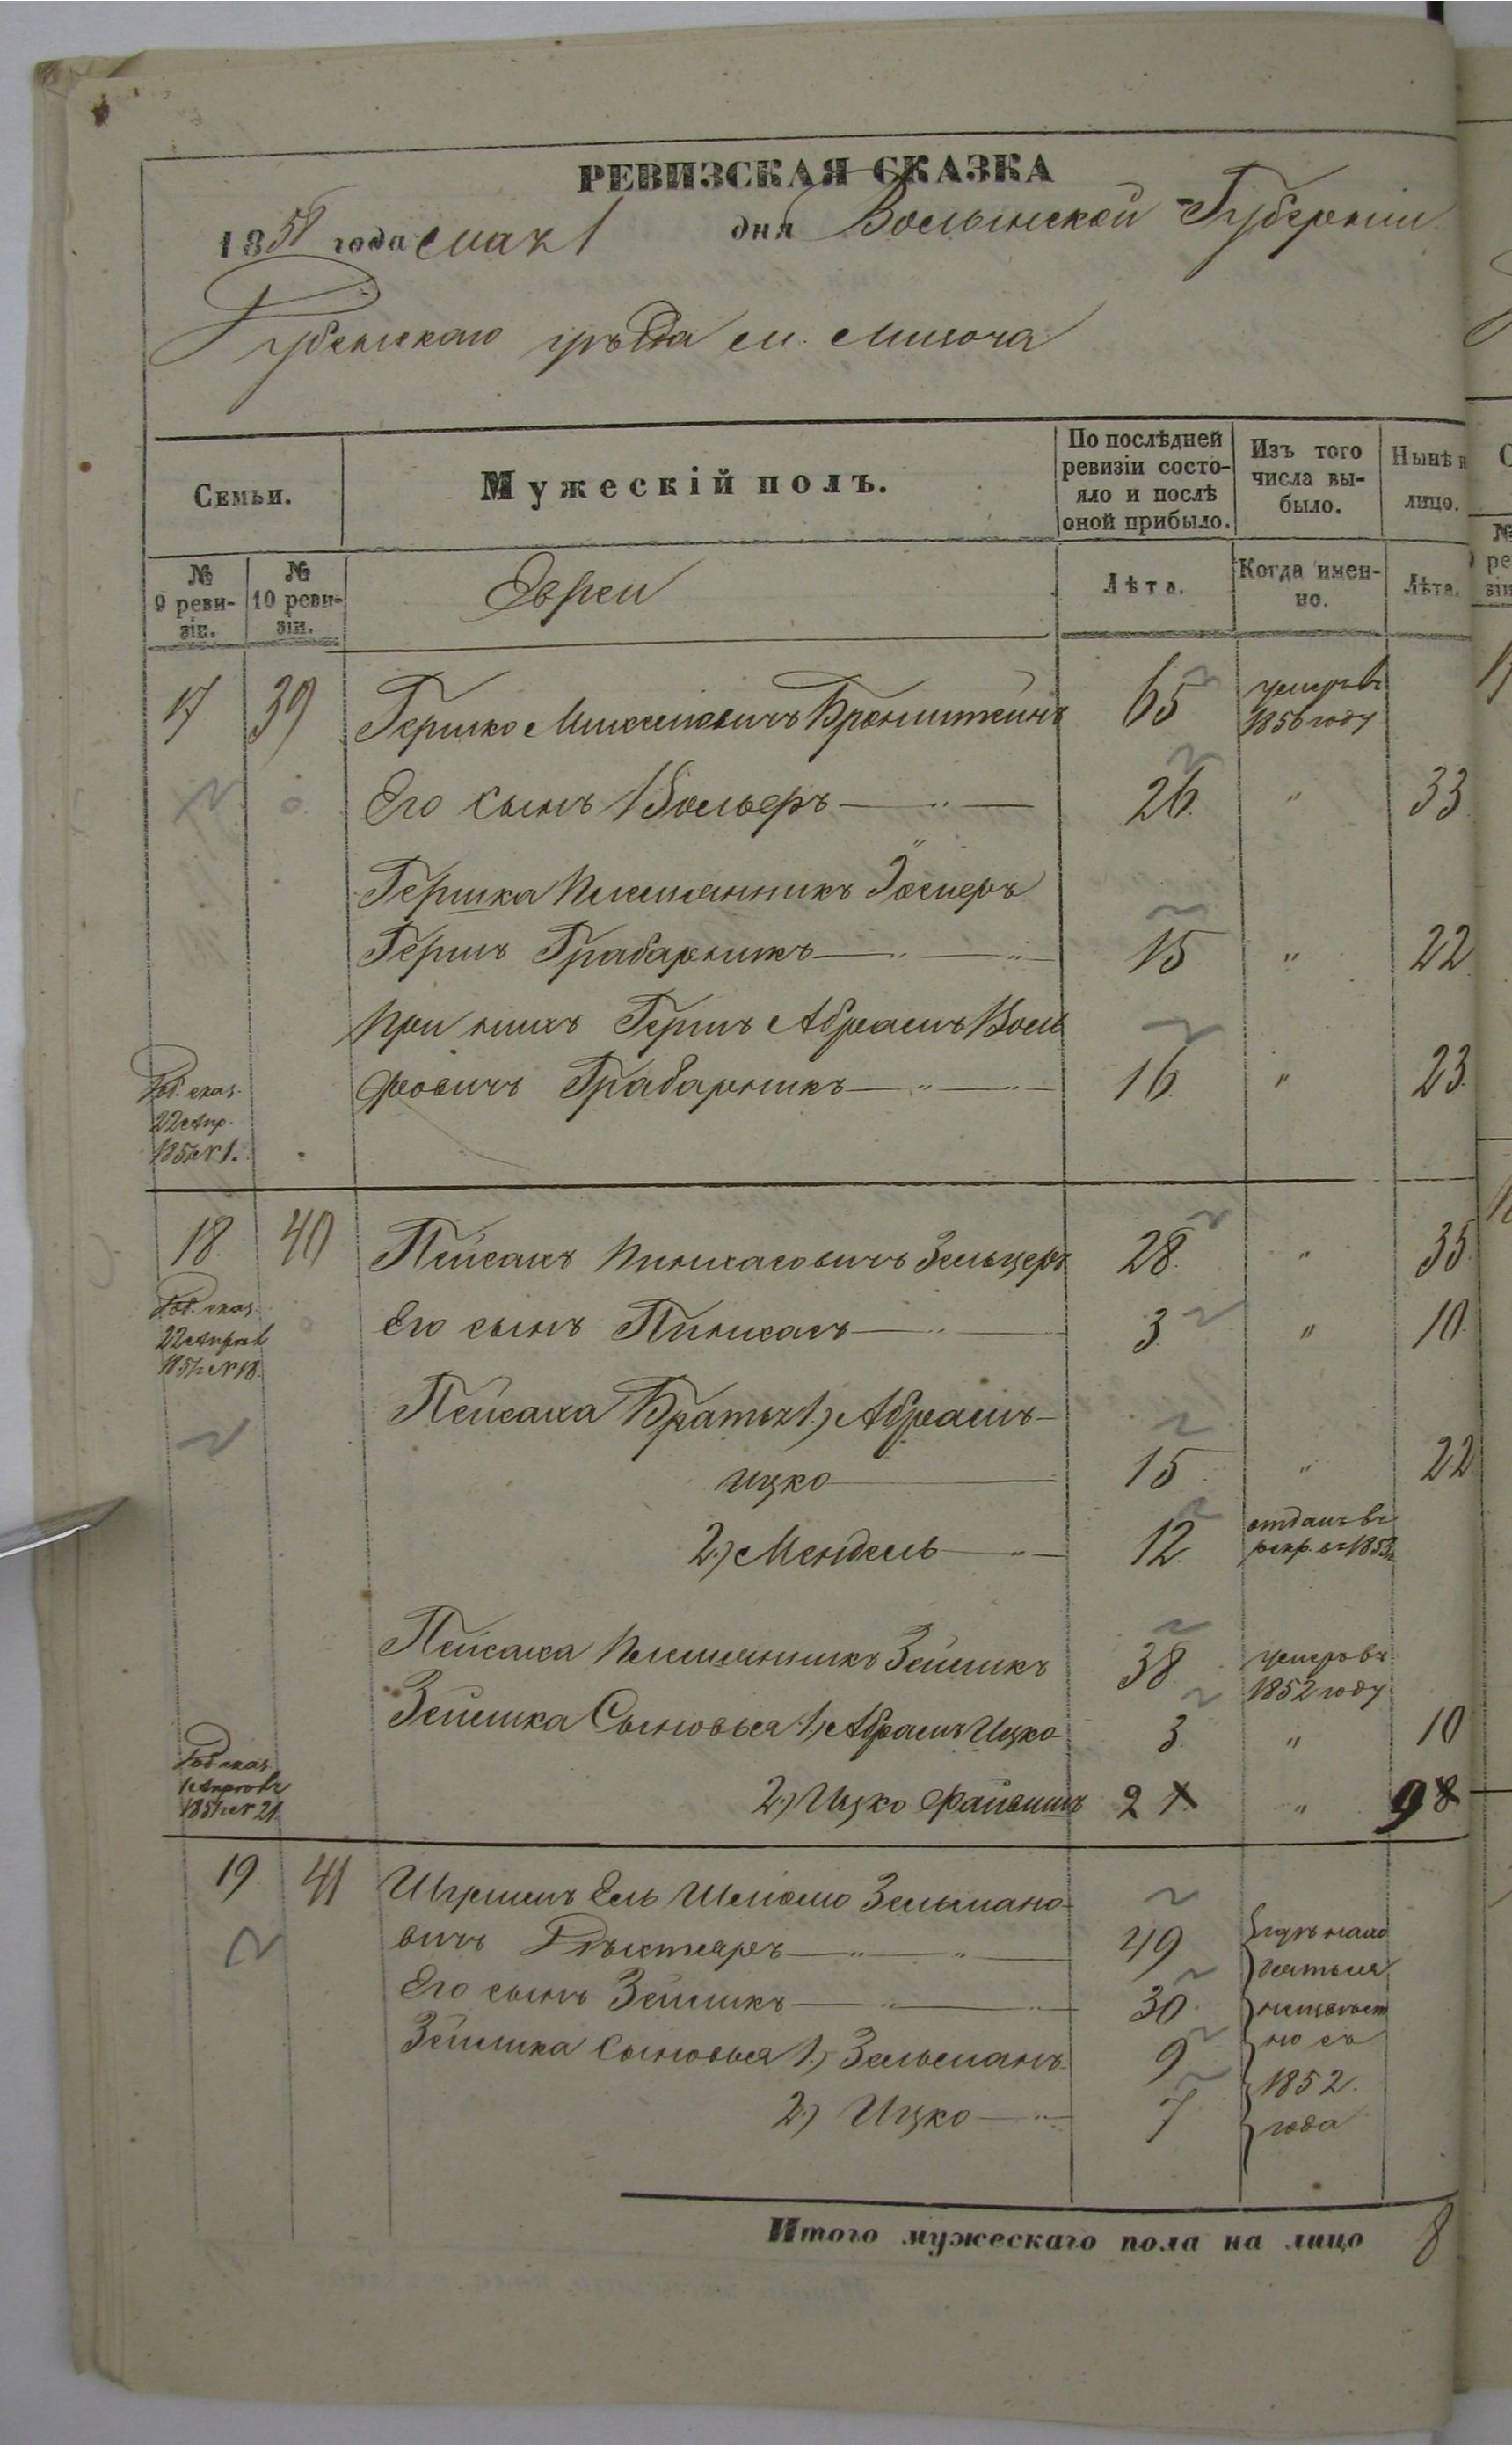 РЕВИЗСКАЯ СКАЗКА
1858 года мая 1 дня Волынской Губернии
Дубенскаго уѣзда м. Мизоча
Семьи.
Мужескій полъ.
По послѣдней ревизіи состо-
яло и послѣ
оной прибыло.
Изъ того
числа вы-
было.
Нынѣ н
лицо.
№
9 реви-
зіи.
№
10 реви-
зіи.
Евреи
Лѣта.
Когда имен-
но.
Лѣта.
17 39 Гершко 65 умеръ въ
1856 году
Его сынъ Вольфъ 26 " 33
Гершка племянникъ
Гершъ Грабарникъ 15 " 22
При нихъ Гершъ Абрамъ Воль
фовичъ Грабарникъ 16 " 23
Доб. сказ.
22 Апр.
1851 № 1.
18 40 Пейсахъ Пинхасовичъ Зельцеръ 28 " 35
Его сынъ Пинхасъ 3 " 10
Доб. сказ.
22 Апрѣл
1851 № 18.
Пейсаха Братья 1.) Абрамъ-
Ицко 15 " 22
2.) Мендель 12 отданъ въ
рекр. въ 1853 г.
Пейсаха племянникъ Зейликъ 38 умеръ въ
1852 году
Зейлика Сыновья 1.) Абрамъ Ицко 3 " 10
Доб. сказ.
1851 № 21.
2.) Ицко Файвишъ 2 1 " 9 8
19 41 Шулимъ Ель Шліомо Зельмано-
вичъ 49
Его сынъ Зейликъ 30
Зейлика сыновья 1.) Зельманъ 9
2.) Ицко 7
гдѣ нахо
дятся
неизвѣст
но съ
1852.
года
Итого мужескаго пола на лицо 8